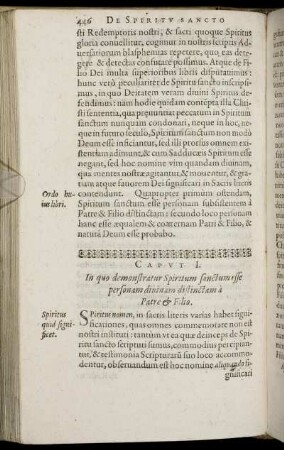 446 DE SPIRITV SANCTO
sti Redemptoris nostri, & sacri quoque Spiritus
gloria convellitur, cogimur in nostris scriptis Ad-
versariorum blasphemias repetere, quo, eas dete-
gere & detectas confutare possimus. Atque de Fi-
lio Dei multa superioribus libris disputavimus:
hunc verò peculiariter de Spiritu sancto inscripsi-
mus, in quo Deitatem veram divini Spiritus de-
fendimus: nam hodie quidam contépta illa Chri-
sti sententia, qua pronuntiat peccatum in Spiritum
sanctum nunquam condonari, neque in hoc, ne-
que in futuro seculo, Spiritum sanctum non modò
Deum esse inficiantur, sed illi prorsus omnem exi-
stentiam adimunt, & cum Sadducæis Spiritum esse
negant, sed hoc nomine vim quandam divinam,
qua mentes nostræ agitantur, & moventur, & gra-
tum atque favorem Dei significari in Sacris literis
Ordo hu- contendunt. Quapropter primùm ostendam,
ius libri. Spiritum sanctum esse personam subsistentem à
Patre & Filio distinctam: secundo loco personam
hanc esse æqualem & coæternam Patri & Filio, &
naturâ Deum esse probabo.
CAPVT I.
In quo demonstratur Spiritum sanctum esse
personam divinam distinctam à
Patre & Filio.
Spiritus SPiritus nomen, in sacris literis varias habet signi-
quid signi- ficationes, quas omnes commemorare non est
ficet. nostri instituti: tantùm vt ea quæ deinceps de Spi-
ritu sancto scripturi sumus, commodius percipian-
tur, & testimonia Scripturarū suo loco accommo-
dentur, observandum est hoc nomine aliquando si-
gnificari